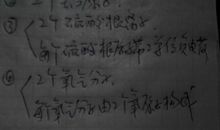 2个硫酸根离子
每个硫酸根离子带2个单位负电荷
⑥ 2个氧气分子
每个氧气分子由2个氧原子构成